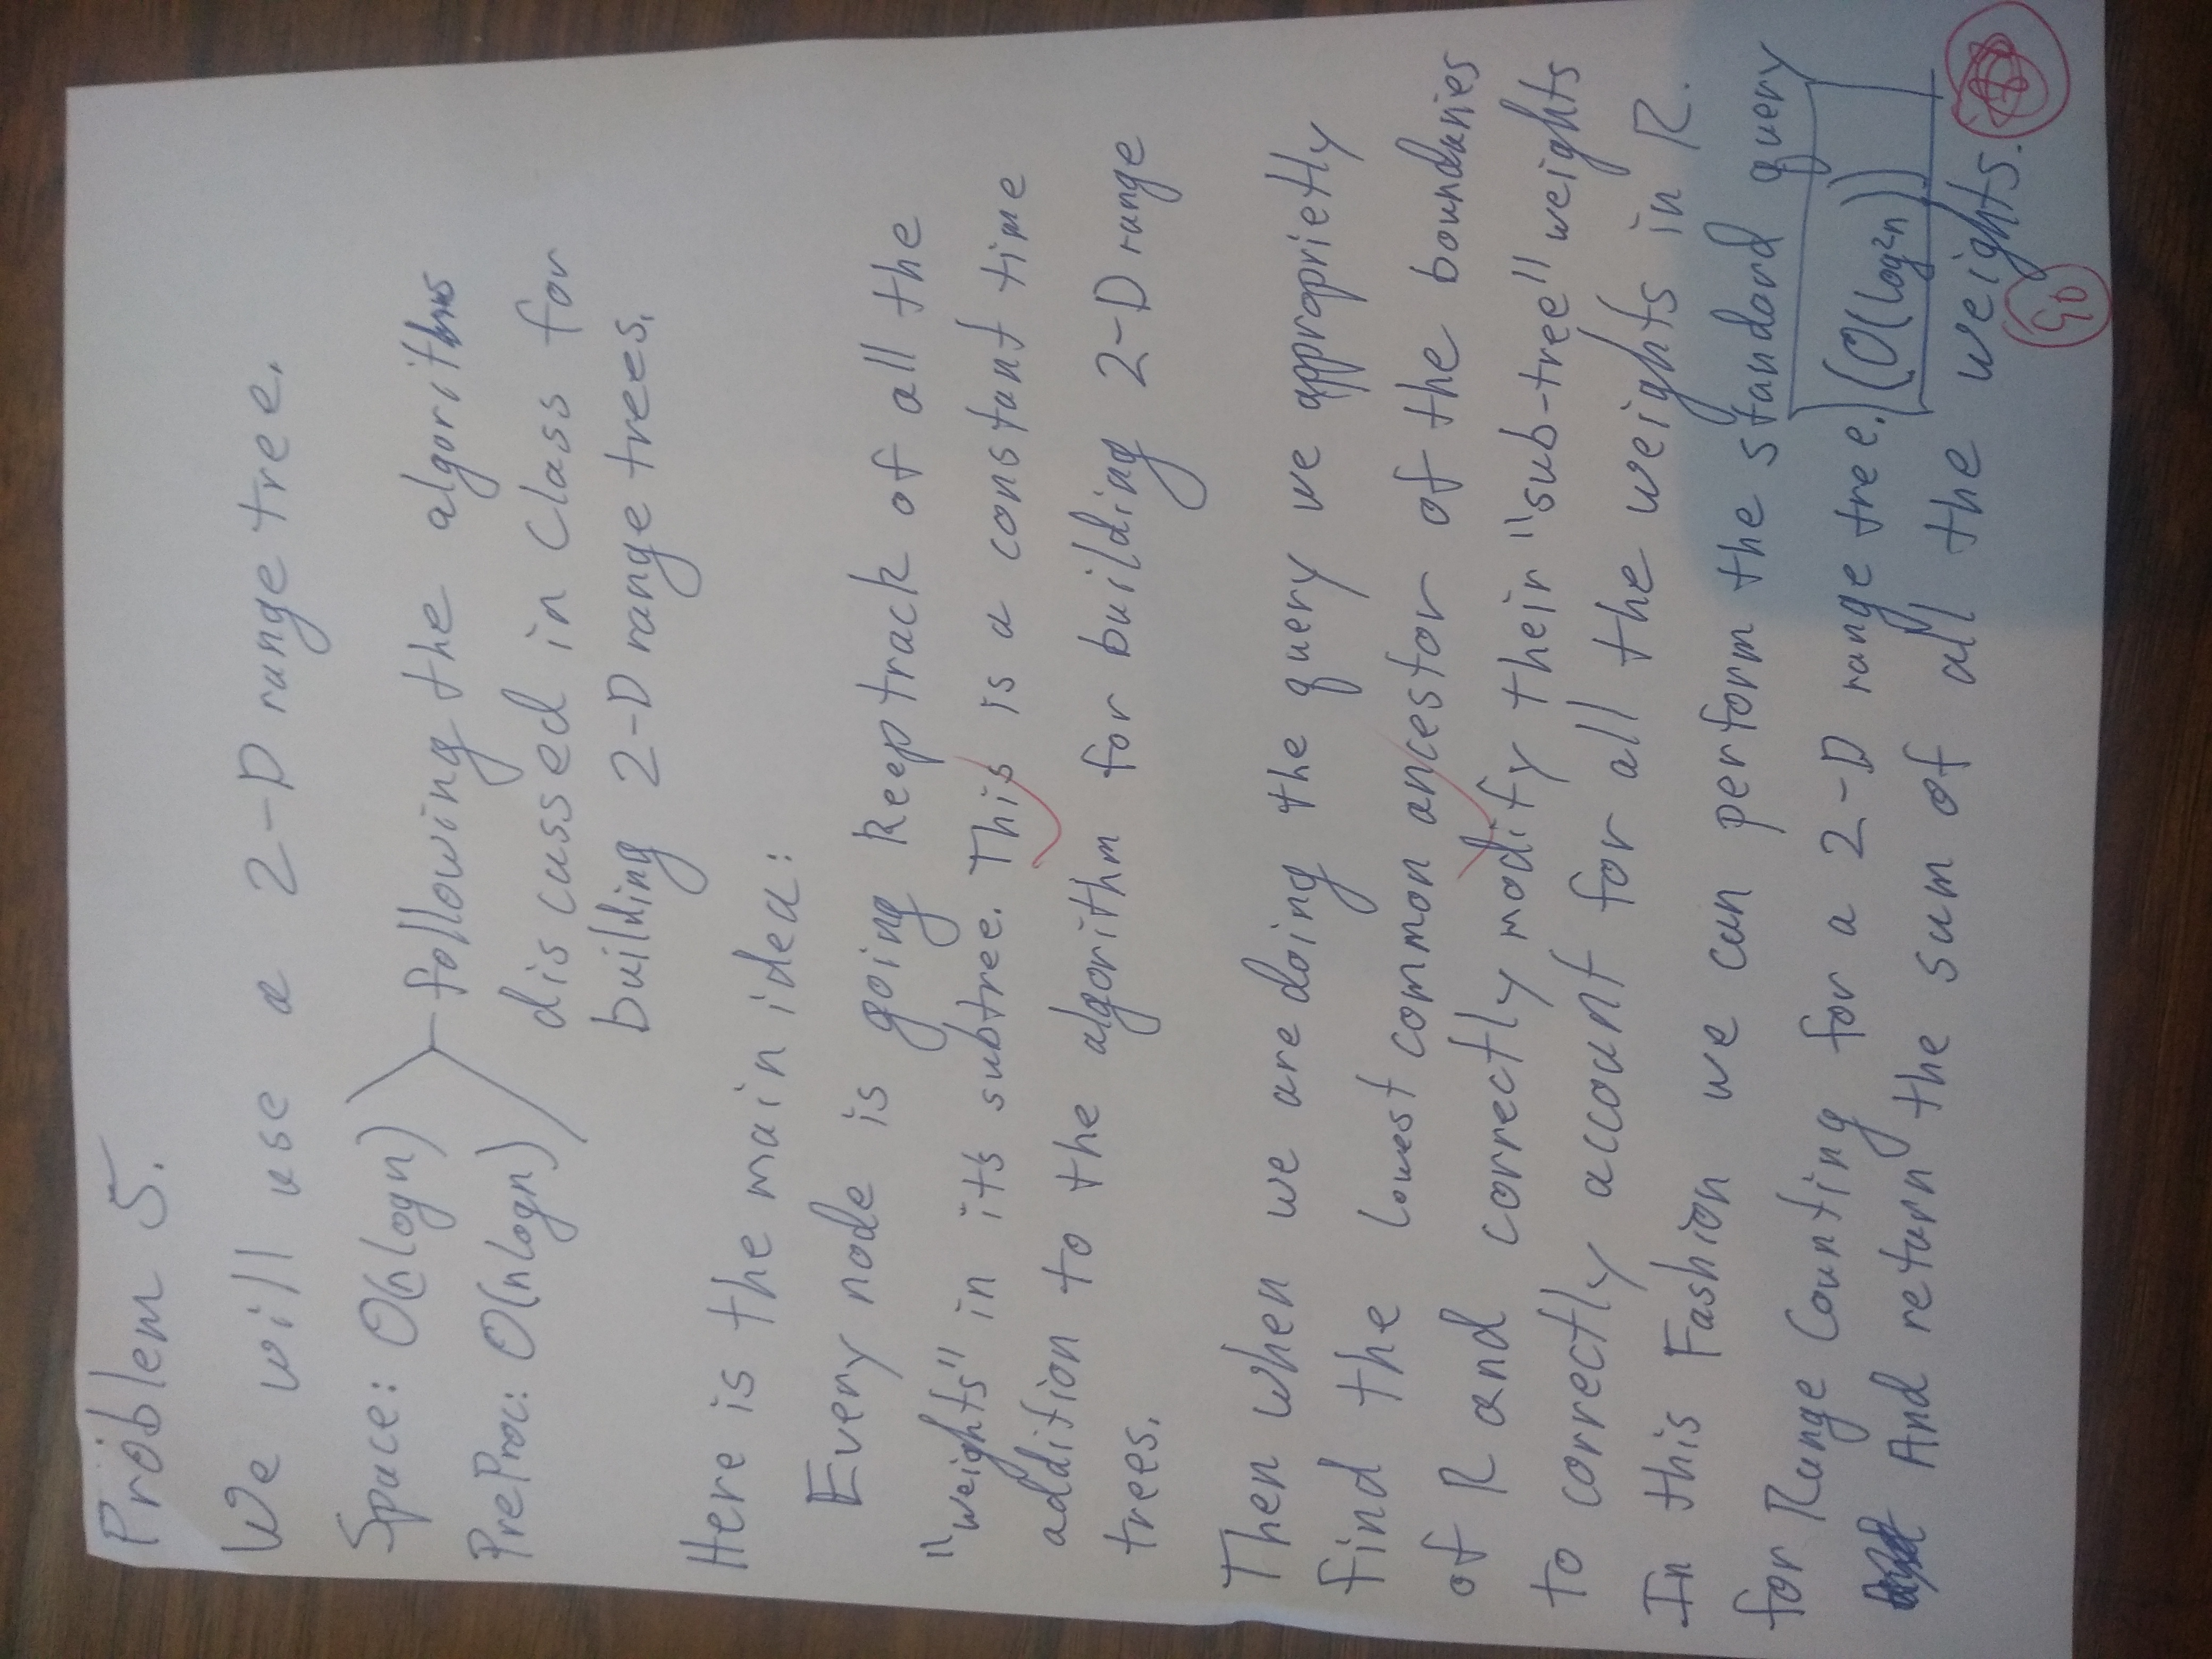 Problem 5.
We will use a 2-D range tree.
Space: O(n log n)
PreProc: O(n log n)
following the algorithms
discussed in Class for
building 2-D range trees.
Here is the main idea:
Every node is going keep track of all the
"weights" in it's subtree. This is a constant time
addition to the algorithm for building 2-D range
trees.
Then when we are doing the query we approprietly
find the lowest common ancestor of the boundaries
of R and correctly modify their "sub-tree" weights
to correctly account for all the weights in R.
In this Fashion we can perform the standard query
for Range Counting for a 2-D range tree. (O(log²n))
And return the sum of all the weights.
90